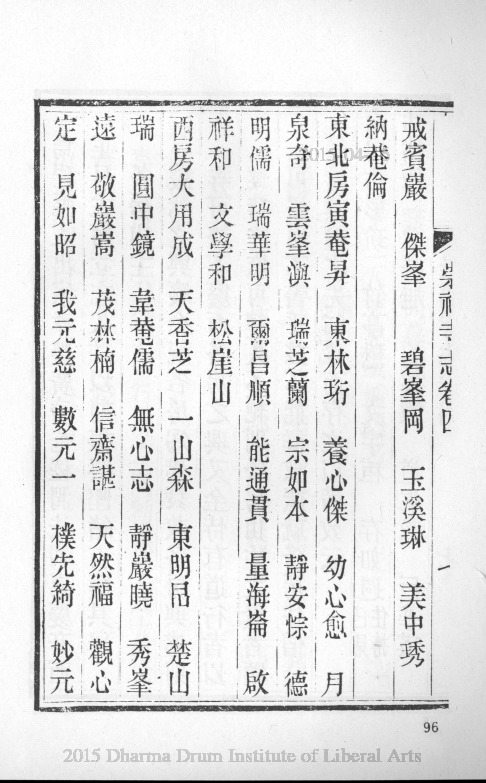 崇福寺志卷四
一
戒賓巖　傑峯　　碧峯岡　玉溪琳　美中琇
納菴倫
東北房寅菴昇　東林珩　養心傑　幼心愈　月
泉奇　雲峯滇　瑞芝蘭　宗如本　靜安悰　德
明儒　瑞華明　爾昌順　能通貫　量海崙　啟
祥和　文學和　松崖山
西房大用成　天香芝　一山森　東明　楚山
瑞　圓中鏡　韋菴儒　無心志　靜巖曉　秀峯
遠　敬巖嵩　茂林楠　信齋諶　天然福　觀心
定　見如昭　我元慈　數元一　樸先綺　妙元
96
2015 Dharma Drum Institute of Liberal Arts